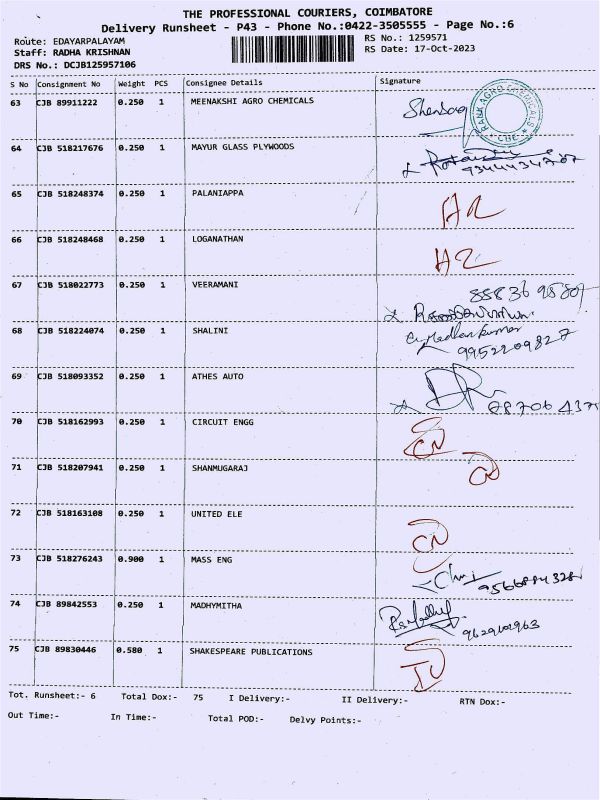 THE PROFESSIONAL COURIERS, COIMBATORE
Delivery Runsheet - P43 - Phone No.:0422-3505555 - Page No.:6
Route: EDAYARPALAYAM RS No.: 1259571
Staff: RADHA KRISHNAN RS Date: 17-Oct-2023
DRS No.: DCJB125957106
S No Consignment No Weight PCS Consignee Details Signature
63 CJB 89911222 0.250 1 MEENAKSHI AGRO CHEMICALS
64 CJB 518217676 0.250 1 MAYUR GLASS PLYWOODS
65 CJB 518248374 0.250 1 PALANIAPPA
66 CJB 518248468 0.250 1 LOGANATHAN
67 CJB 518022773 0.250 1 VEERAMANI
68 CJB 518224074 0.250 1 SHALINI
9952209827
69 CJB 518093352 0.250 1 ATHES AUTO
70 CJB 518162993 0.250 1 CIRCUIT ENGG
71 CJB 518207941 0.250 1 SHANMUGARAJ
72 CJB 518163108 0.250 1 UNITED ELE
73 CJB 518276243 0.900 1 MASS ENG
74 CJB 89842553 0.250 1 MADHYMITHA
75 CJB 89830446 0.580 1 SHAKESPEARE PUBLICATIONS
Tot. Runsheet:- 6 Total Dox:- 75 I Delivery:- II Delivery:- RTN Dox:-
Out Time:- In Time:- Total POD:- Delvy Points:-